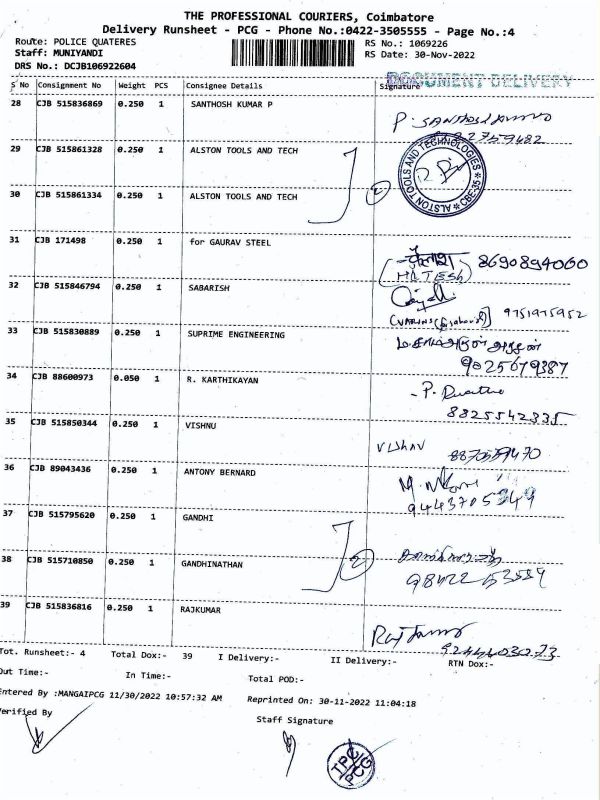 THE PROFESSIONAL COURIERS, Coimbatore
Delivery Runsheet - PCG - Phone No.:0422-3505555 - Page No.:4
Route: POLICE QUATERES RS No.: 1069226
Staff: MUNIYANDI RS Date: 30-Nov-2022
DRS No.: DCJB106922604
DOCUMENT DELIVERY
S No Consignment No Weight PCS Consignee Details Signature
28 CJB 515836869 0.250 1 SANTHOSH KUMAR P
29 CJB 515861328 0.250 1 ALSTON TOOLS AND TECH
ALSTON TOOLS AND TECHNOLOGIES * CBE-35 *
30 CJB 515861334 0.250 1 ALSTON TOOLS AND TECH
2
31 CJB 171498 0.250 1 for GAURAV STEEL
8690894060
(HITESH)
32 CJB 515846794 0.250 1 SABARISH
9751975952
33 CJB 515830889 0.250 1 SUPRIME ENGINEERING
9025679387
34 CJB 88600973 0.050 1 R. KARTHIKAYAN
8825542335
35 CJB 515850344 0.250 1 VISHNU
36 CJB 89043436 0.250 1 ANTONY BERNARD
37 CJB 515795620 0.250 1 GANDHI
38 CJB 515710850 0.250 1 GANDHINATHAN
2
39 CJB 515836816 0.250 1 RAJKUMAR
Tot. Runsheet:- 4 Total Dox:- 39 I Delivery:- II Delivery:- RTN Dox:-
Out Time:- In Time:- Total POD:-
Entered By :MANGAIPCG 11/30/2022 10:57:32 AM Reprinted On: 30-11-2022 11:04:18
Verified By Staff Signature
TPC
PCG